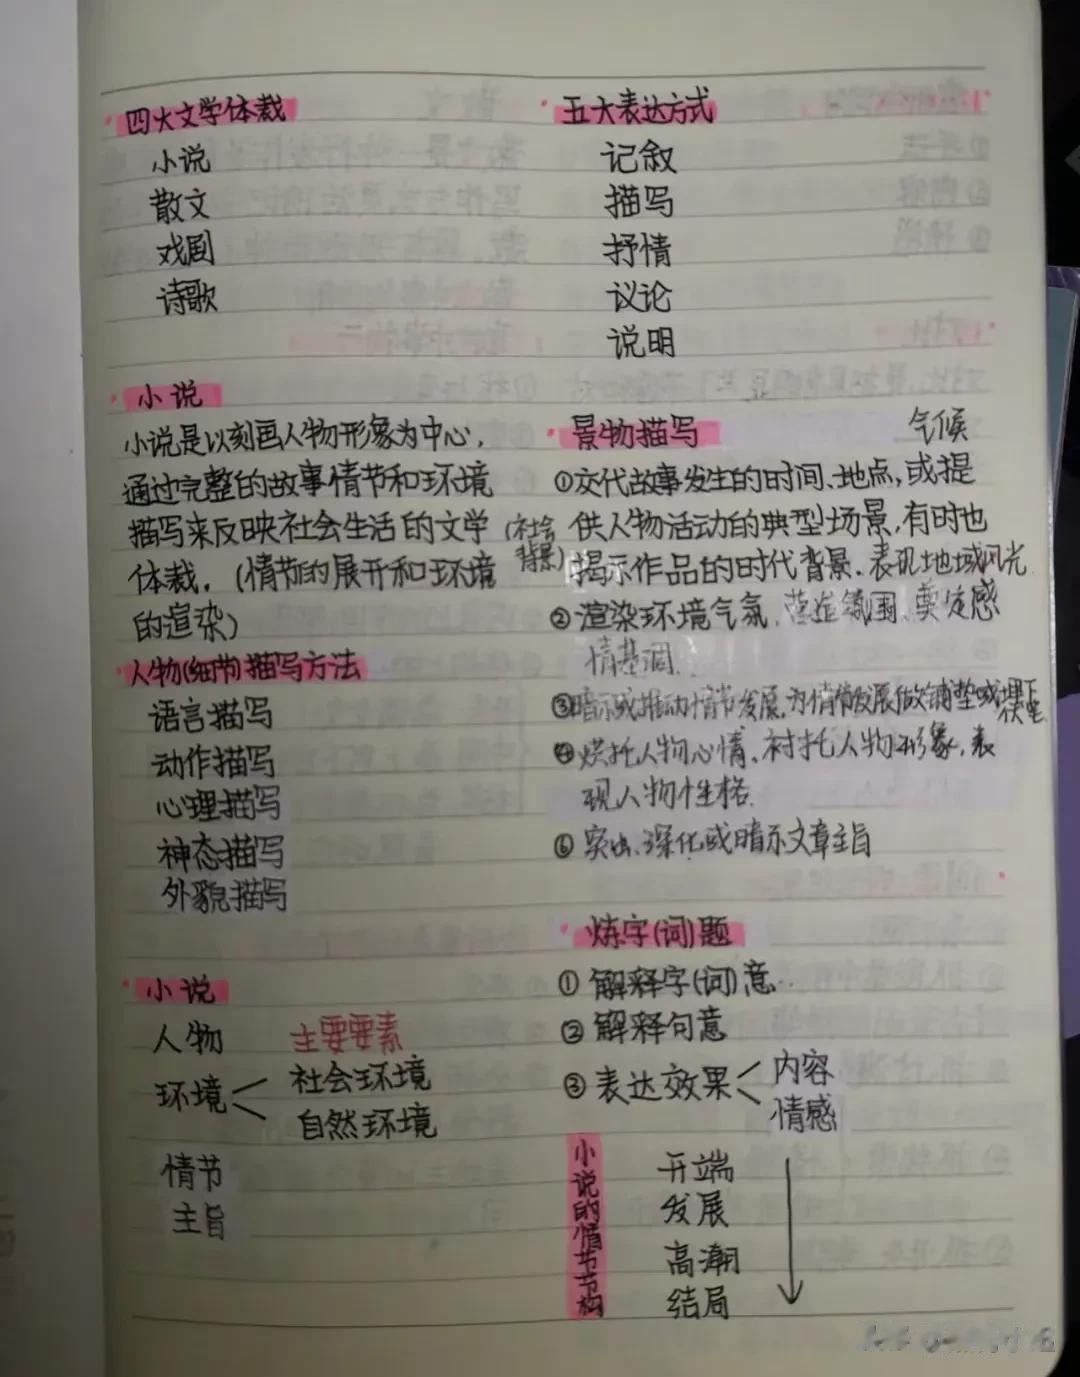 四大文学体裁
小说
散文
戏剧
诗歌
五大表达方式
记叙
描写
抒情
议论
说明
小说
小说是以刻画人物形象为中心,
通过完整的故事情节和环境
描写来反映社会生活的文学
体裁.(情节的展开和环境
的渲染)
(社会
背景)
人物(细节)描写方法
语言描写
动作描写
心理描写
神态描写
外貌描写
小说
人物 主要要素
环境 社会环境
自然环境
情节
主旨
景物描写
气候
①交代故事发生的时间、地点,或提
供人物活动的典型场景,有时也
揭示作品的时代背景.表现地域风光
②渲染环境气氛.营造氛围、奠定感
情基调.
③暗示或推动情节发展,为情节发展做铺垫或埋下
伏笔
④烘托人物心情、衬托人物形象,表
现人物性格.
⑥突出、深化或暗示文章主旨
炼字(词)题
①解释字(词)意.
②解释句意
③表达效果 内容
情感
小说的情节节构
开端
发展
高潮
结局